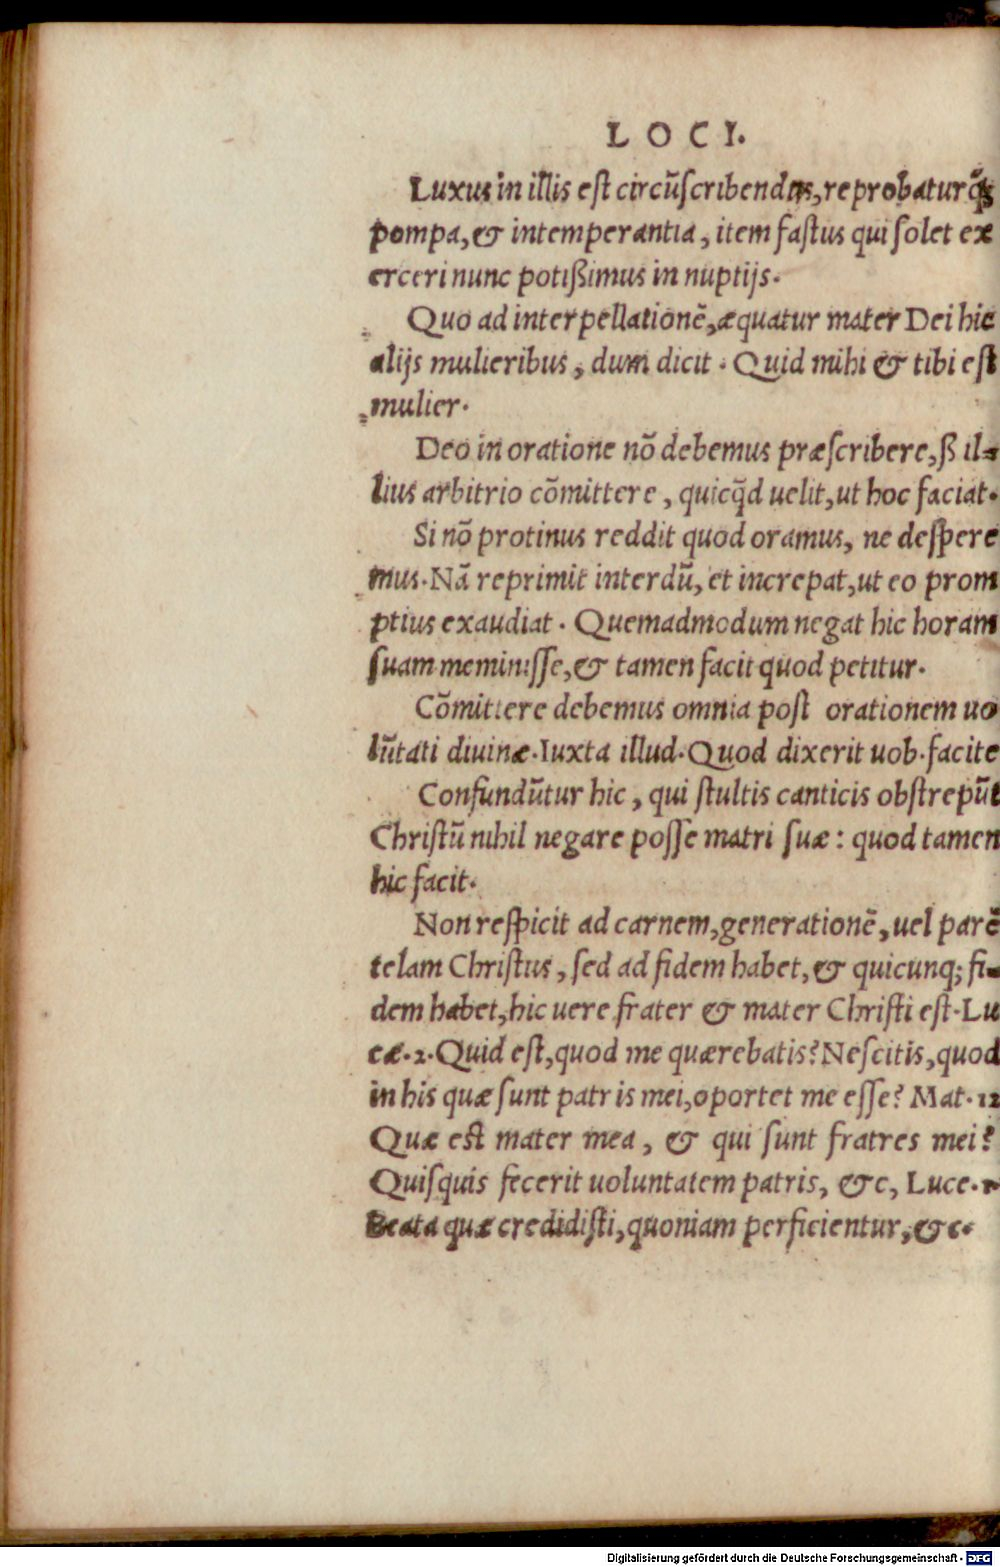 LOCI.
Luxus in illis est circũscribendus, reprobaturq̃;
pompa, & intemperantia, item fastus qui solet ex
erceri nunc potißimus in nuptijs.
Quo ad interpellationẽ, æquatur mater Dei hic
alijs mulieribus, dum dicit. Quid mihi & tibi est
mulier.
Deo in oratione nõ debemus præscribere, ß il-
lius arbitrio cõmittere, quicq̃d uelit, ut hoc faciat.
Si nõ protinus reddit quod oramus, ne despere
mus. Nã reprimit interdũ, et increpat, ut eo prom
ptius exaudiat. Quemadmodum negat hic horam
suam meminisse, & tamen facit quod petitur.
Cõmittere debemus omnia post orationem uo
lũtati diuinæ. Iuxta illud. Quod dixerit uob. facite
Confundũtur hic, qui stultis canticis obstrepũt
Christũ nihil negare posse matri suæ: quod tamen
hic facit.
Non respicit ad carnem, generationẽ, uel parẽ
telam Christus, sed ad fidem habet, & quicunq; fi-
dem habet, hic uere frater & mater Christi est. Lu
cæ. 2. Quid est, quod me quærebatis? Nescitis, quod
in his quæ sunt patris mei, oportet me esse? Mat. 12
Quæ est mater mea, & qui sunt fratres mei?
Quisquis fecerit uoluntatem patris, &c, Luce. 1
Beata quæ credidisti, quoniam perficientur, &c.
Digitalisierung gefördert durch die Deutsche Forschungsgemeinschaft - DFG